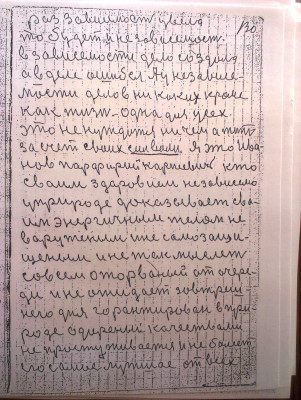 раз зависимость ушла
130
то будет и независимость.
в зависимости дело создал я
а в деле ошибся. А у независи-
мости делов никаких кроме
как жизнь одна для всех
это не нуждаться ничем а жить
за счет своих сил воли. Я это Ива-
нов парфирий карнеевич кто
своим здаровием независимо
у природе доказывает сво-
им энергичным телом не
варужением и не самозащи-
щеным и не так мыслет
совсем оторваный от очере-
ди и не ожидает завтриш-
него дня горантирован в при-
роде одереный качествами
не простуживается и не болеет
это самое лутшае от всех